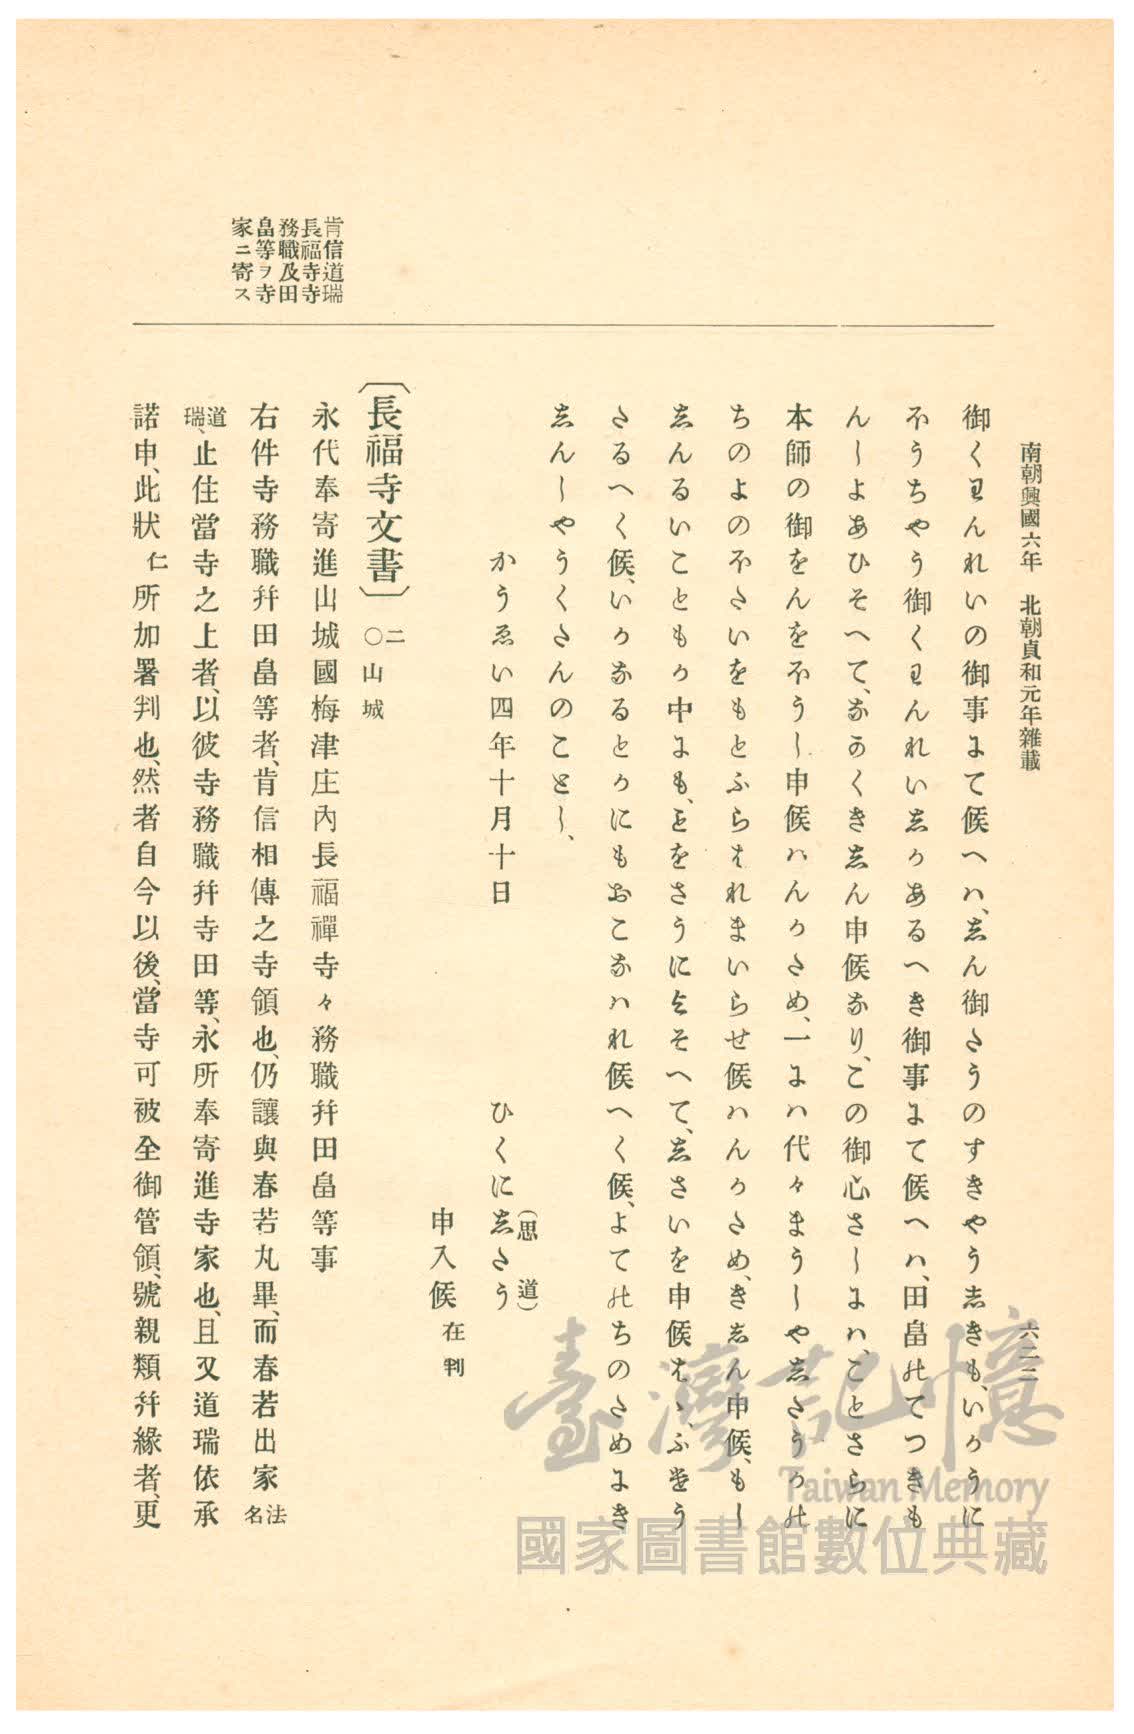 南朝興國六年　北朝貞和元年雜載　六二二
御くわんれいの御事にて候へハ、志ん御たうのすきやう志きも、いかうに
ほうちやう御くわんれい志かあるへき御事にて候へハ、田畠のてつきも
んしよあひそへて、なかくき志ん申候なり、この御心さしにハ、ことさらに
本師の御をんをほうし申候ハんかため、一にハ代々まうしや志たうかの
ちのよのほたいをもとふらはれまいらせ候ハんかため、き志ん申候、もし
志んるいこともか中にも、をさうにそへて、志さいを申候はゝ、ふけう
たるへく候、いかなるとかにもおこなハれ候へく候、よてのちのためにき
志んしやうくたんのことし、
かうゑい四年十月十日　ひくに志たう(思道)
申入候 在判
〔長福寺文書〕 二 ○山城
永代奉寄進山城國梅津庄內長福禪寺々務職幷田畠等事
右件寺務職幷田畠等者、肯信相傳之寺領也、仍讓與春若丸畢、而春若出家法名
道瑞、止住當寺之上者、以彼寺務職幷寺田等、永所奉寄進寺家也、且又道瑞依承
諾申、此狀仁所加署判也、然者自今以後、當寺可被全御管領、號親類幷緣者、更
肯信道瑞
長福寺寺
務職及田
畠等ヲ寺
家ニ寄ス
臺灣記憶
Taiwan Memory
國家圖書館數位典藏